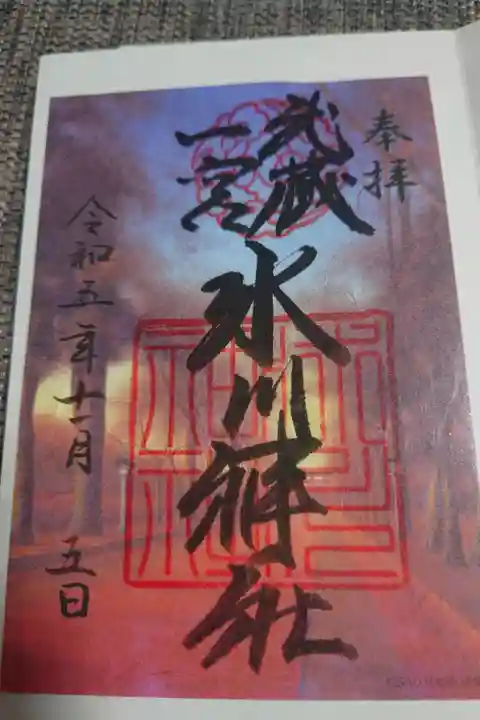 奉拝
武蔵
一宮
氷川神社
令和五年十一月 五日